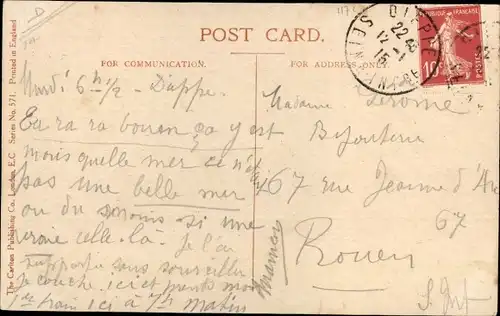 11798
D
POST CARD.
FOR COMMUNICATION.
FOR ADDRESS ONLY.
The Carlton Publishing Co., London, E.C. Series No. 571. Printed in England
DIEPPE
22
12 - 1
15
SEINE INFRE
REPUBLIQUE FRANÇAISE
10
POSTES
Mardi 6h 1/2 - Dieppe.
ça y est
mais quelle mer ce n'est
pas une belle mer
ou du moins si une
vraie celle-là. Je l'ai
supportée sans sourciller
je couche ici et prends mon
1er train ici à 7h Matin
Maman
Madame Jérome
Bijouterie
67 rue Jeanne d'Arc
67
Rouen
S. Inf